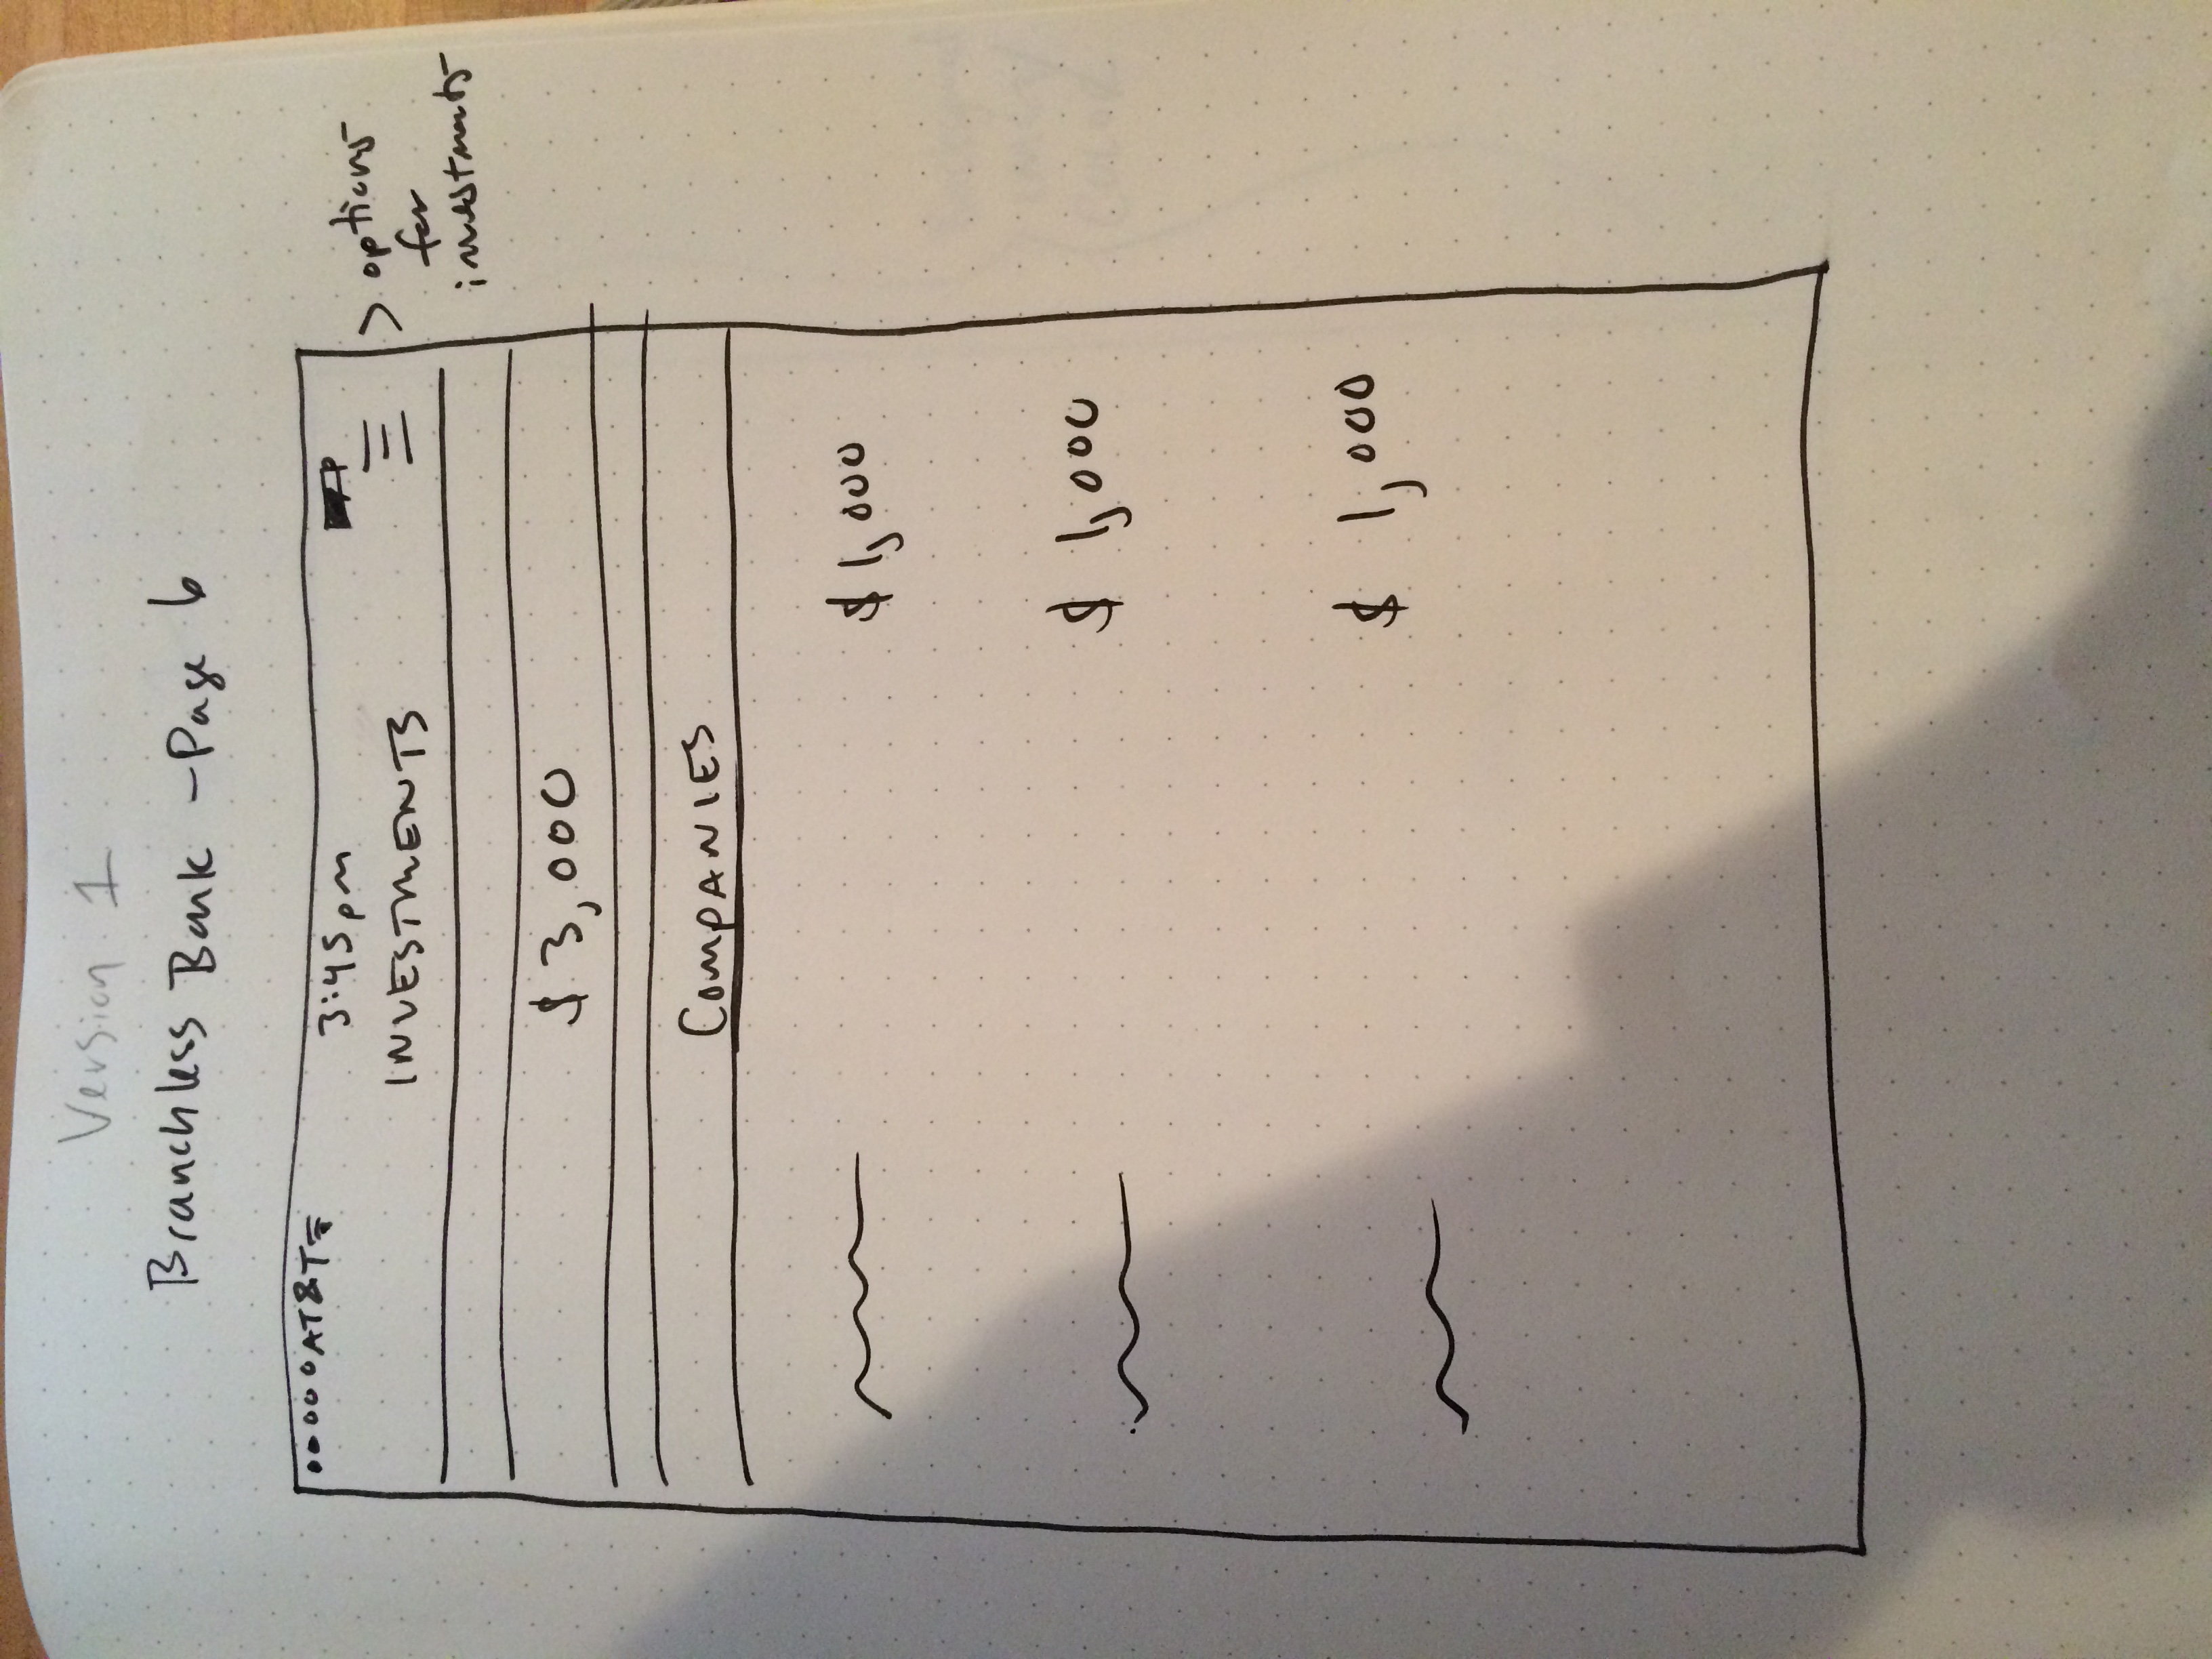 Version 1
Branchless Bank - Page 6
AT&T
3:45pm
INVESTMENTS
> options
for
investments
$ 3,000
COMPANIES
$ 1,000
$ 1,000
$ 1,000